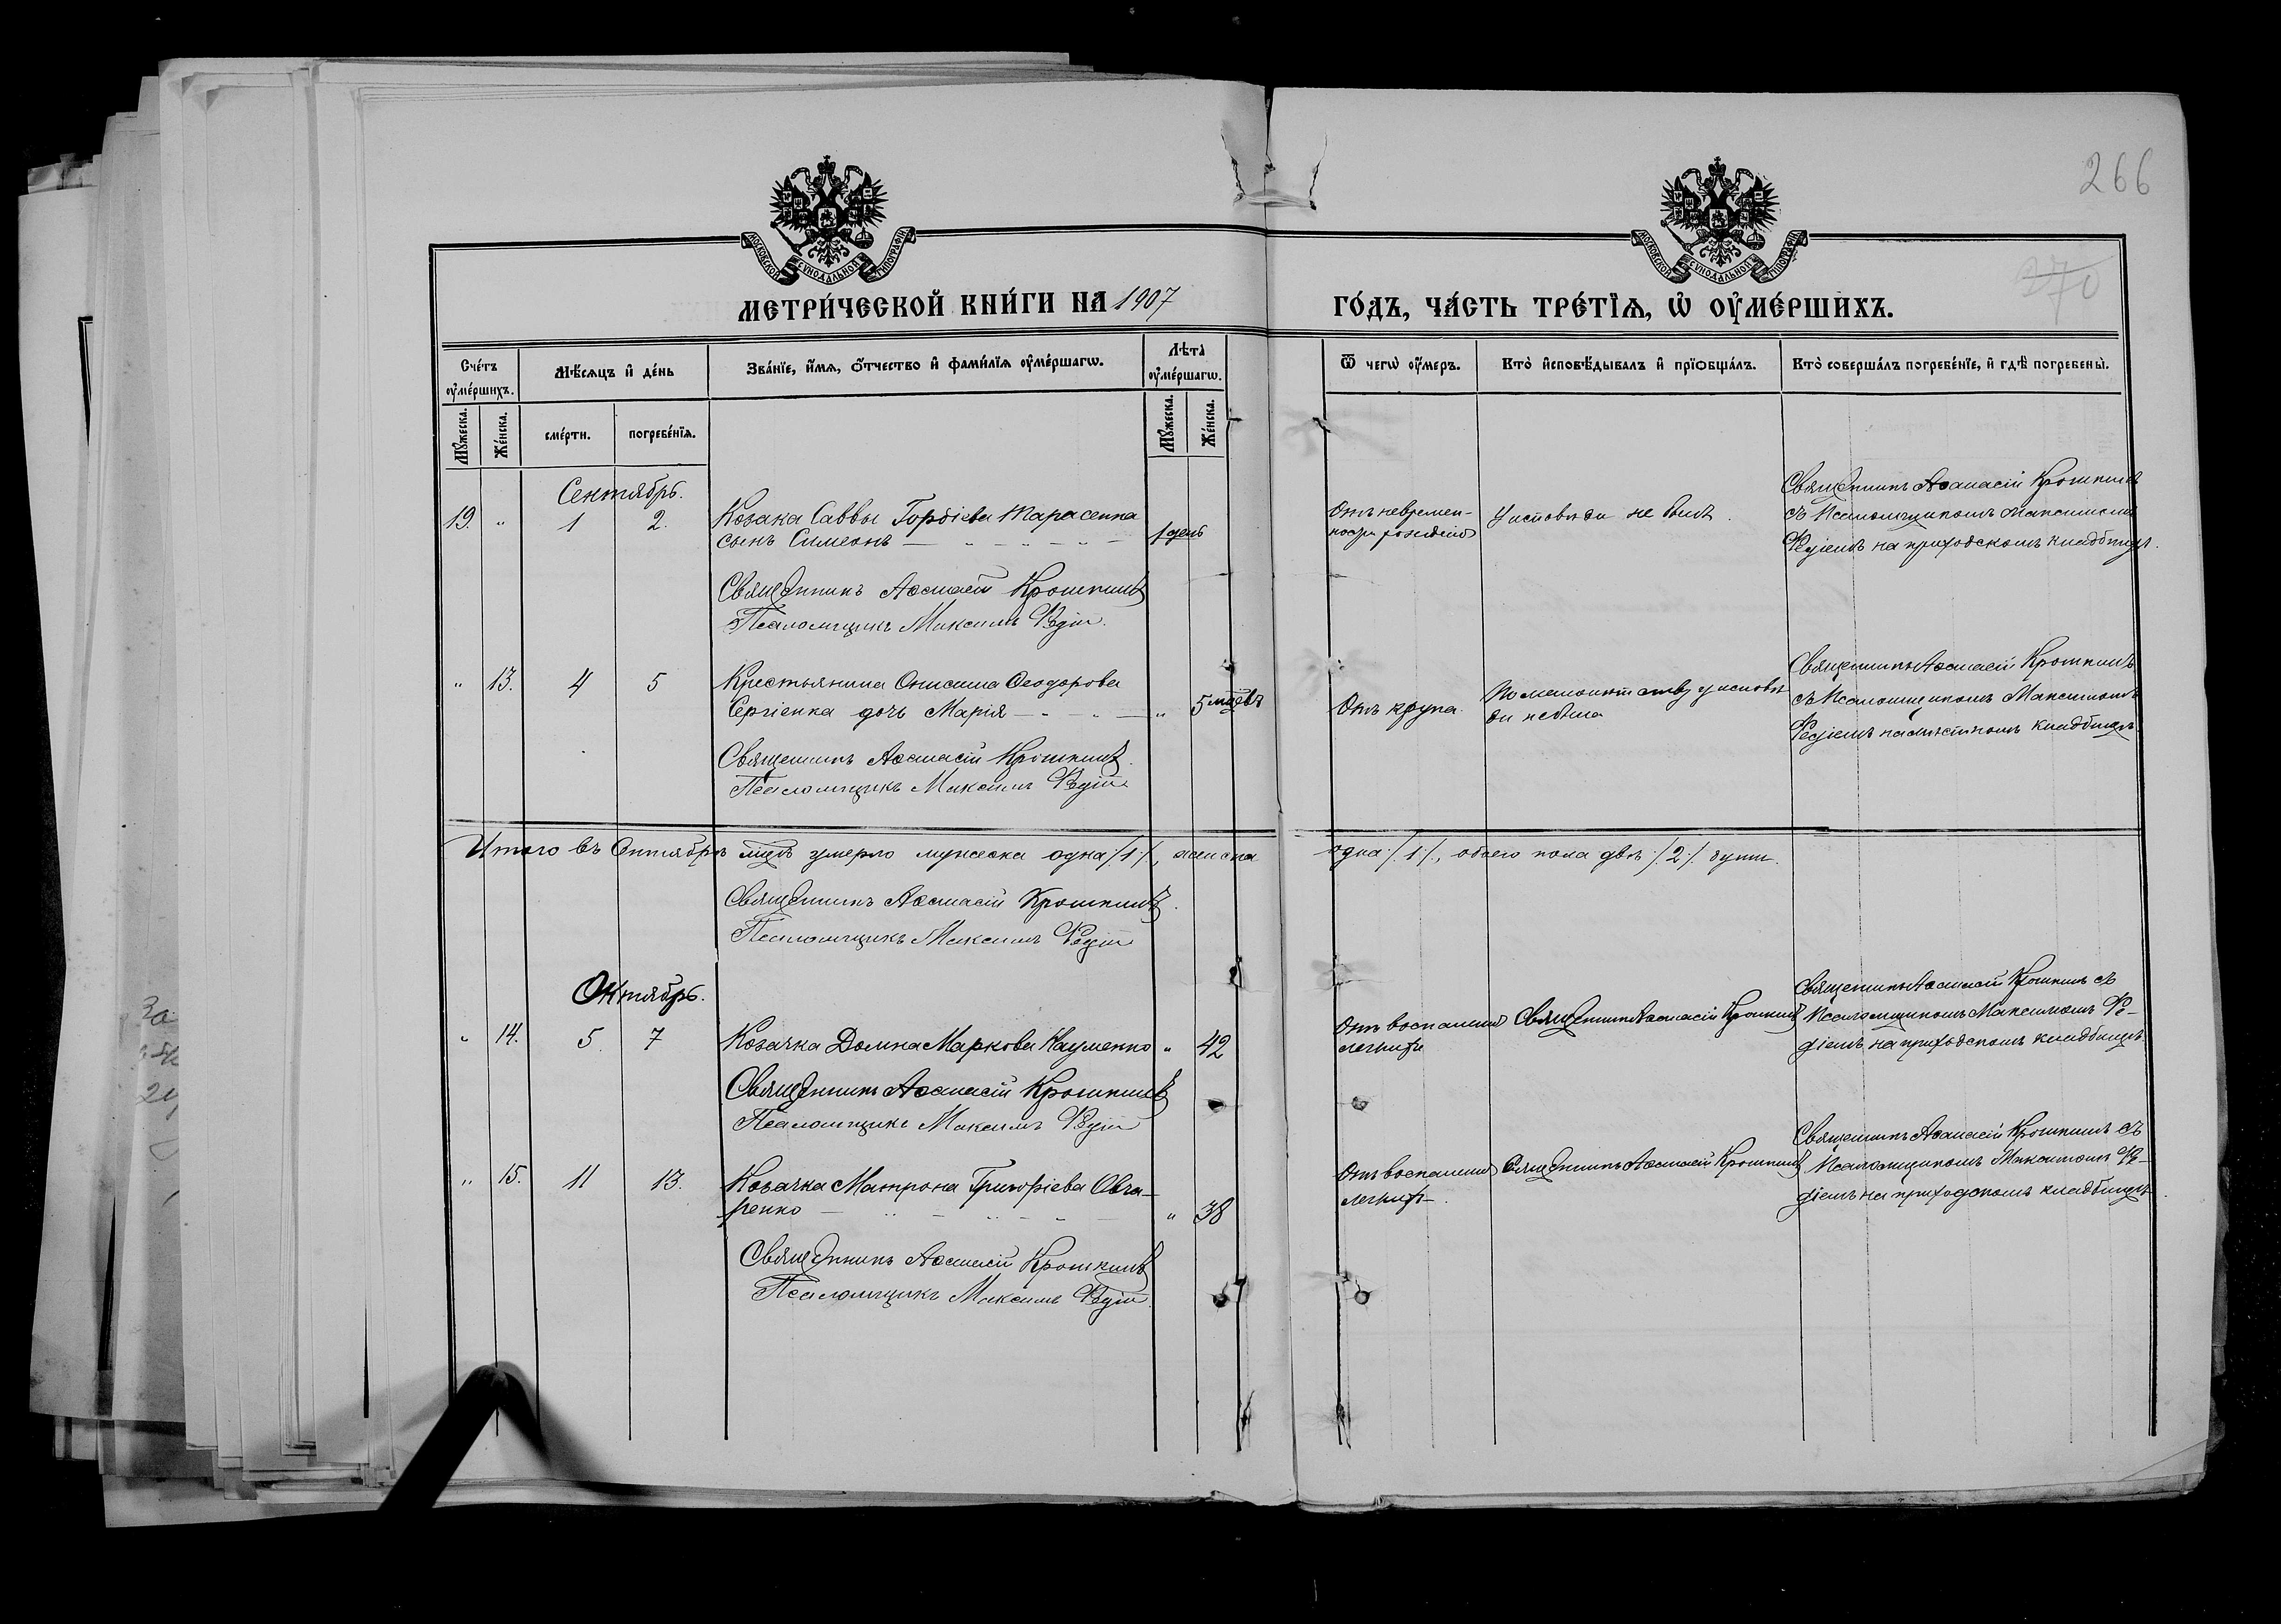 266
270
МОСКОВСКОЙ СУНОДАЛЬНОЙ ТИПОГРАФІИ
МОСКОВСКОЙ СУНОДАЛЬНОЙ ТИПОГРАФІИ
МЕТРИ́ЧЕСКОЙ КНИ́ГИ НА 1907 ГО́ДЪ, ЧА́СТЬ ТРЕ́ТІѦ, Ѡ ОУМЕ́РШИХЪ.
Сче́тъ оумершихъ.
Мѣ́сяцъ и де́нь
Зва́нїе, и́мѧ, о́тчество и фами́лїѧ оуме́ршагѡ.
Лѣта̀ оуме́ршагѡ.
Ѿ чегѡ̀ оу́меръ.
Кто̀ исповѣ́дывалъ и прїѡбща́лъ.
Кто̀ соверша́лъ погребе́нїе, и гдѣ̀ погребены̀.
Мꙋжеска.
Же́нска.
сме́рти.
погребе́нїѧ.
Мꙋжеска.
Же́нска.
Сентябрь.
19. " 1 2. Козака Саввы Гордіева Тарасенка
сынъ Симеонъ 1 день
Отъ невремен-
наго рожденія
У исповѣди не былъ.
Священникъ Аѳанасій Крошкинъ
съ Псаломщикомъ Максимомъ
на приходскомъ кладбищѣ.
Священникъ Аѳанасій Крошкинъ
Псаломщикъ Максимъ
" 13. 4 5 Крестьянина Онисима Ѳеодорова
Сергіенка дочь Марія " 5 мѣсцвъ
Отъ крупа.
По малолѣтству у исповѣ
ди не была
Священникъ Аѳанасій Крошкинъ
съ Псаломщикомъ Максимомъ
на мѣстномъ кладбищѣ
Священникъ Аѳанасій Крошкинъ.
Псаломщикъ Максимъ
Итого въ Сентябрѣ мцѣ умерло мужеска одна /1/, женска одна /1/, обоего пола двѣ /2/ души.
Священникъ Аѳанасій Крошкинъ.
Псаломщикъ Максимъ
Октябрь.
" 14. 5 7 Козачка Домна Маркова Науменко " 42
Отъ воспаленія
легкихъ
Священникъ Аѳанасій Крошкинъ
Священникъ Аѳанасій Крошкинъ съ
Псаломщикомъ Максимомъ
на приходскомъ кладбищѣ.
Священникъ Аѳанасій Крошкинъ
Псаломщикъ Максимъ
" 15. 11 13. Козачка Матрона Григоріева Овча-
ренко " 38
Отъ воспаленія
легкихъ
Священникъ Аѳанасій Крошкинъ
Священникъ Аѳанасій Крошкинъ съ
Псаломщикомъ Максимомъ
на приходскомъ кладбищѣ.
Священникъ Аѳанасій Крошкинъ
Псаломщикъ Максимъ